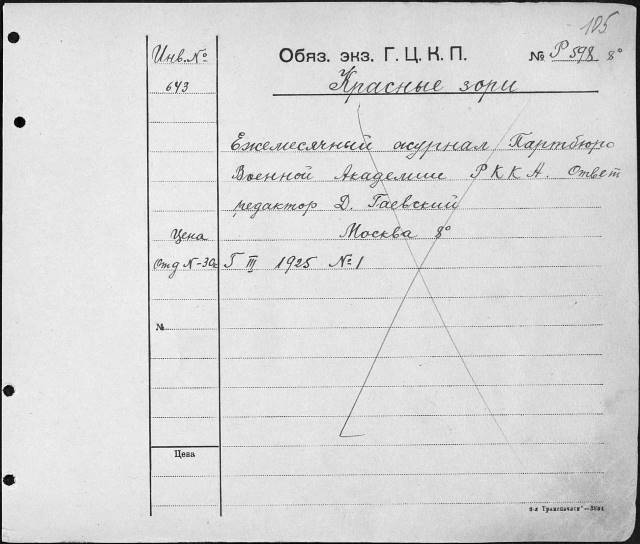 105
Инв. №
Обяз. экз. Г. Ц. К. П.
№ Р 598 8°
643
Красные зори
Ежемесячный журнал Партбюро
Военной Академии Р К К А. Ответ
редактор Д. Гаевский
Цена
Москва 8°
Отд №-30к
Г III 1925 №1
№
Цена